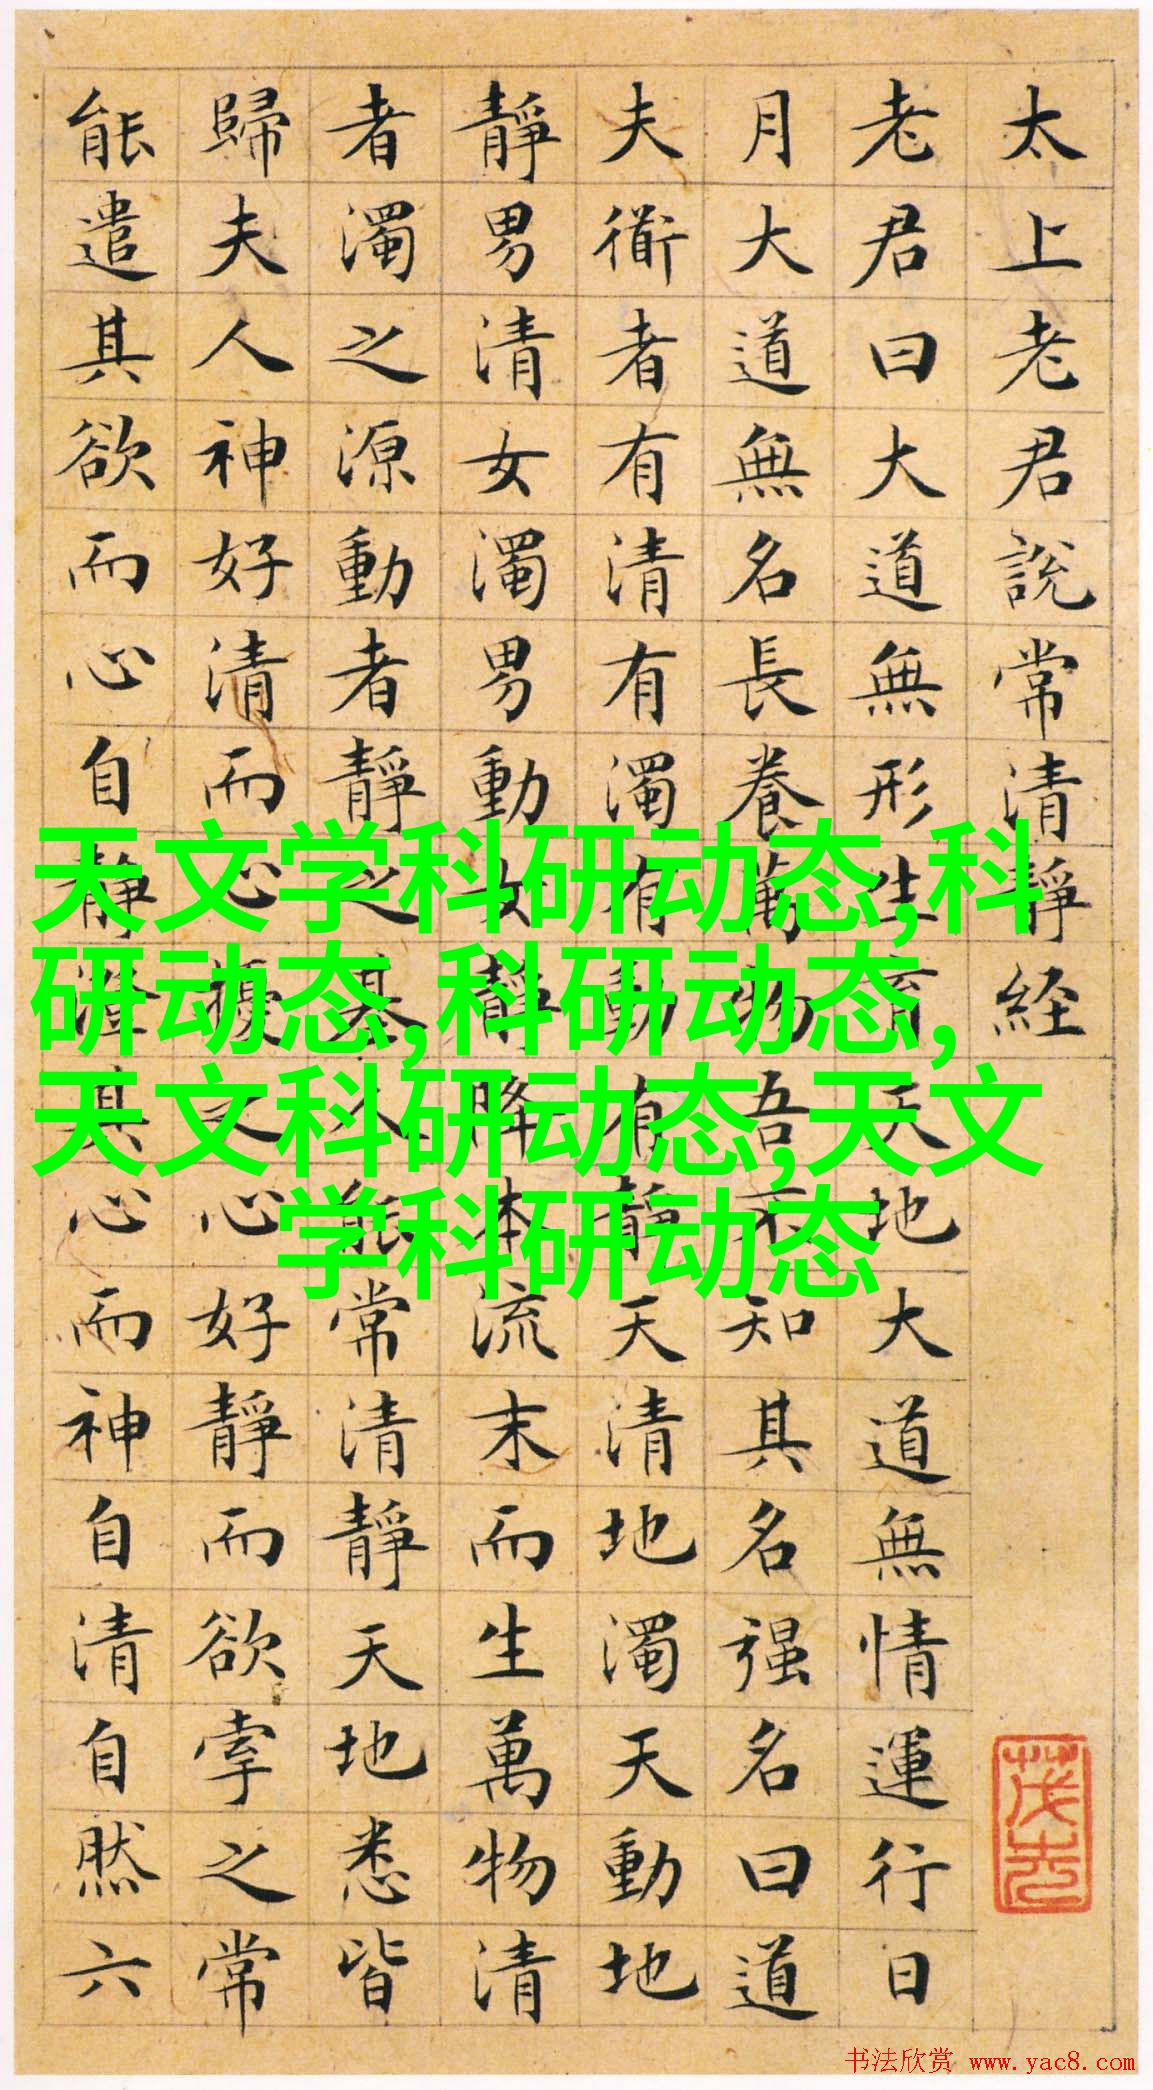 太上老君說常清靜経
老君曰大道無形生育天地大道無情運行日
月大道無名長養萬物吾不知其名强名曰道
夫衜者有清有濁有動有靜天清地濁天動地
靜男清女濁男動女靜降本流末而生萬物清
者濁之源動者靜之基人能常清靜天地悉皆
歸夫人神好清而心擾之心好靜而欲牽之常
能遣其欲而心自靜澄其心而神自清自然六
天文学科研动态,科
研动态,科研动态,
天文科研动态,天文
学科研动态
书法欣赏 www.yac8.com